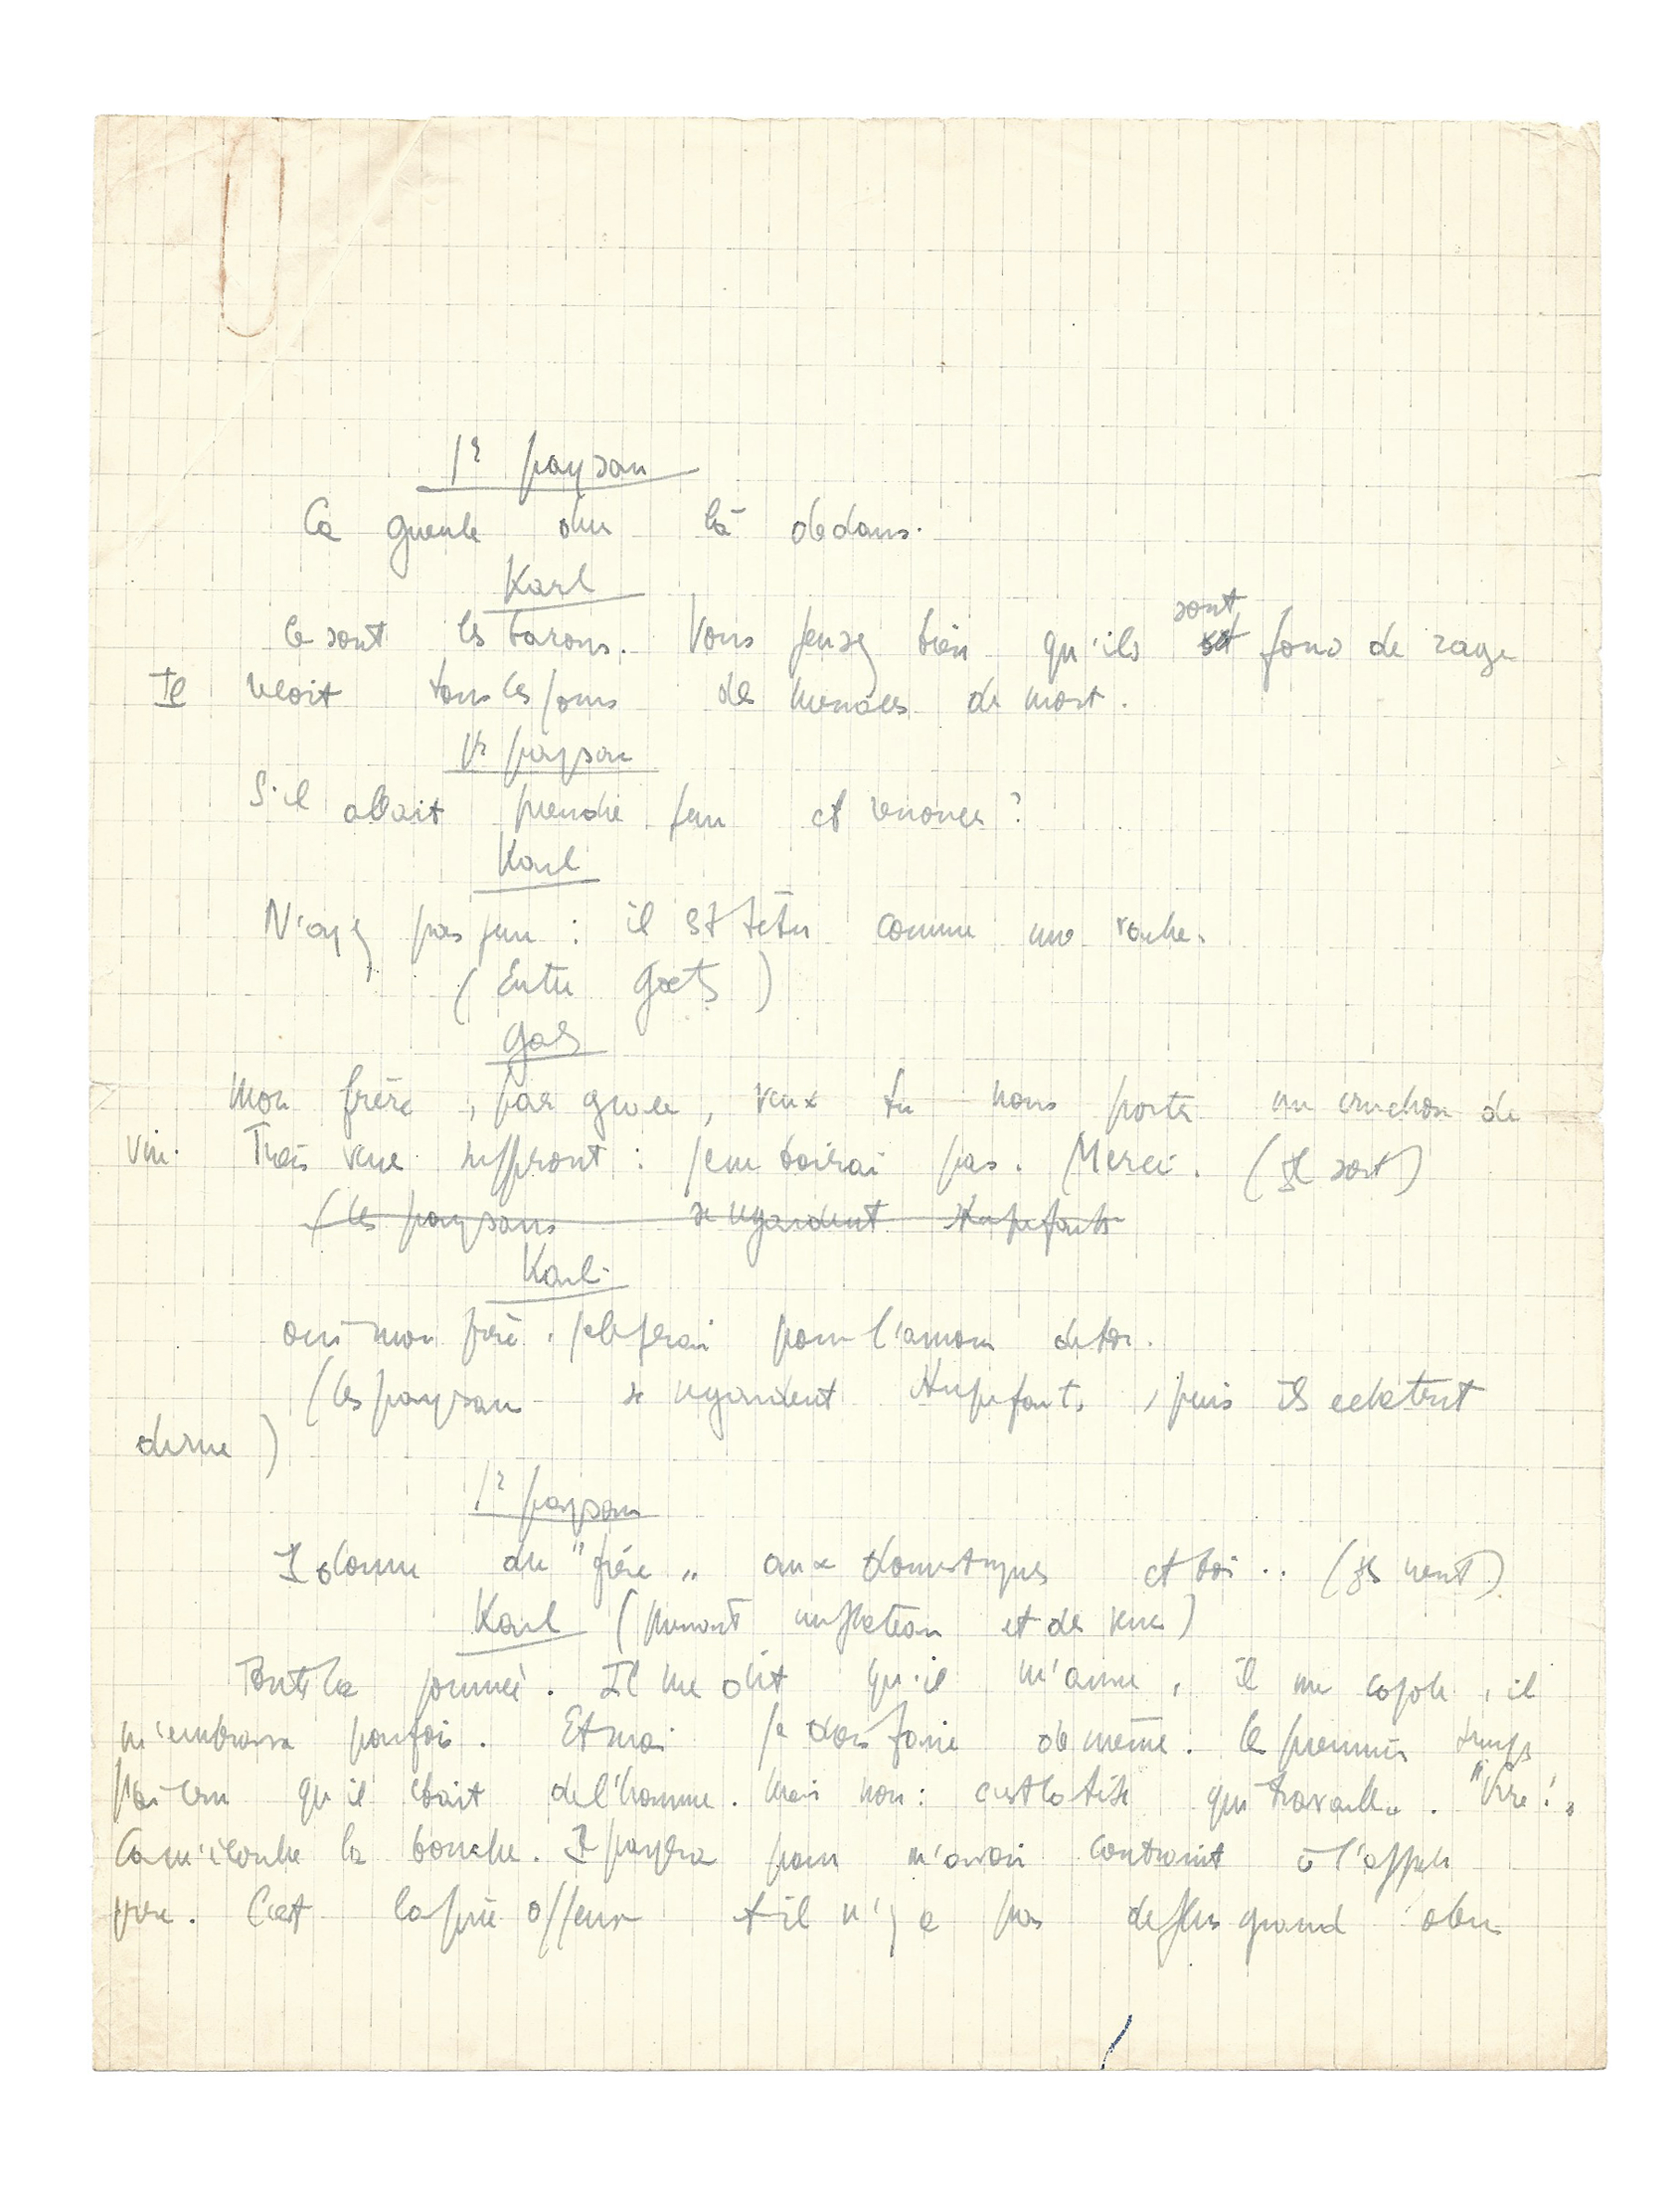 1r paysan
Ca gueule dur là dedans.
Karl
Ce sont les barons. Vous pensez bien qu'ils sont fous de rage
Il reçoit tous les jours des menaces de mort.
1r paysan
S'il allait prendre peur et renoncer?
Karl
N'ayez pas peur : il est têtu comme une roche.
(Entre Gœtz)
Gœtz
Mon frère, par grâce, veux tu nous porter un cruchon de
vin. Trois verres suffiront : je n'en boirai pas. Merci. (Il sort)
(les paysans se regardent stupéfaits
Karl.
oui mon frère, je le ferai pour l'amour de toi.
(les paysans se regardent stupéfaits, puis ils éclatent
de rire)
1r paysan
Il donne du "frère" aux domestiques et toi .. (Ils rient)
Karl (prenant un plateau et des verres)
Toute la journée. Il me dit qu'il m'aime, il me cajole, il
m'embrasse parfois. Et moi je dois faire de même. les premiers temps
j'ai cru qu'il était de l'homme. Mais non : c'est la bêtise qui travaille. "Frère!"
Ca m'écorche la bouche. Il payera pour m'avoir contraint à l'appeler
frère. C'est la pire offense et il n'y a pas de plus grand abus